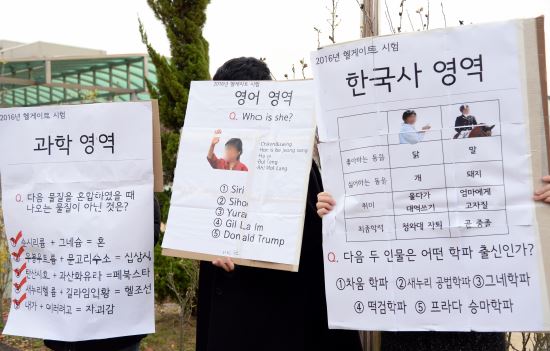 2016년 헬게이트 시험
과학 영역
Q. 다음 물질을 혼합하였을 때
나오는 물질이 아닌 것은?
순시리튬 + 그네슘 = 혼
+ 윤고리수소 = 십상시
탄산시호 + 과산화유라 = 페북스타
새누리헬륨 + 길라임인황 = 헬조선
내가 + 이러려고 = 자괴감
2016년 헬게이트 시험
영어 영역
Q. Who is she?
① Siri
② Siho
③ Yura
④ Gil La Im
⑤ Donald Trump
2016년 헬게이트 시험
한국사 영역
좋아하는 동물 닭 말
싫어하는 동물 개 돼지
취미 울다가 대역쓰기 엄마에게 고자질
최종학력 청와대 자퇴 곧 중졸
Q. 다음 두 인물은 어떤 학파 출신인가?
①차움 학파 ②새누리 공법학파 ③그네학파
④ 떡검학파 ⑤ 프라다 승마학파